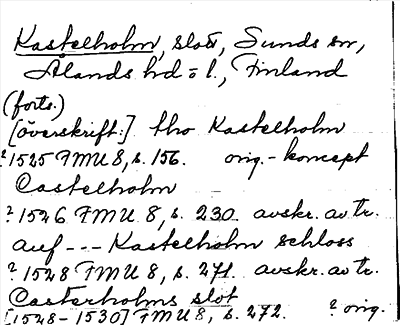 Kastelholm, slott, Sunds sn,
Ålands hd o l., Finland
(forts.)
[överskrift:] tho Kastelholm
?1525 FMU 8, s. 156. orig.-koncept
Castelholm
?1526 FMU 8, s. 230. avskr. av tr.
auf --- Kastelholm schloss
?1528 FMU 8, s. 271. avskr. av tr.
Casterholms slot
[1528-1530] FMU 8, s. 272. ? orig.